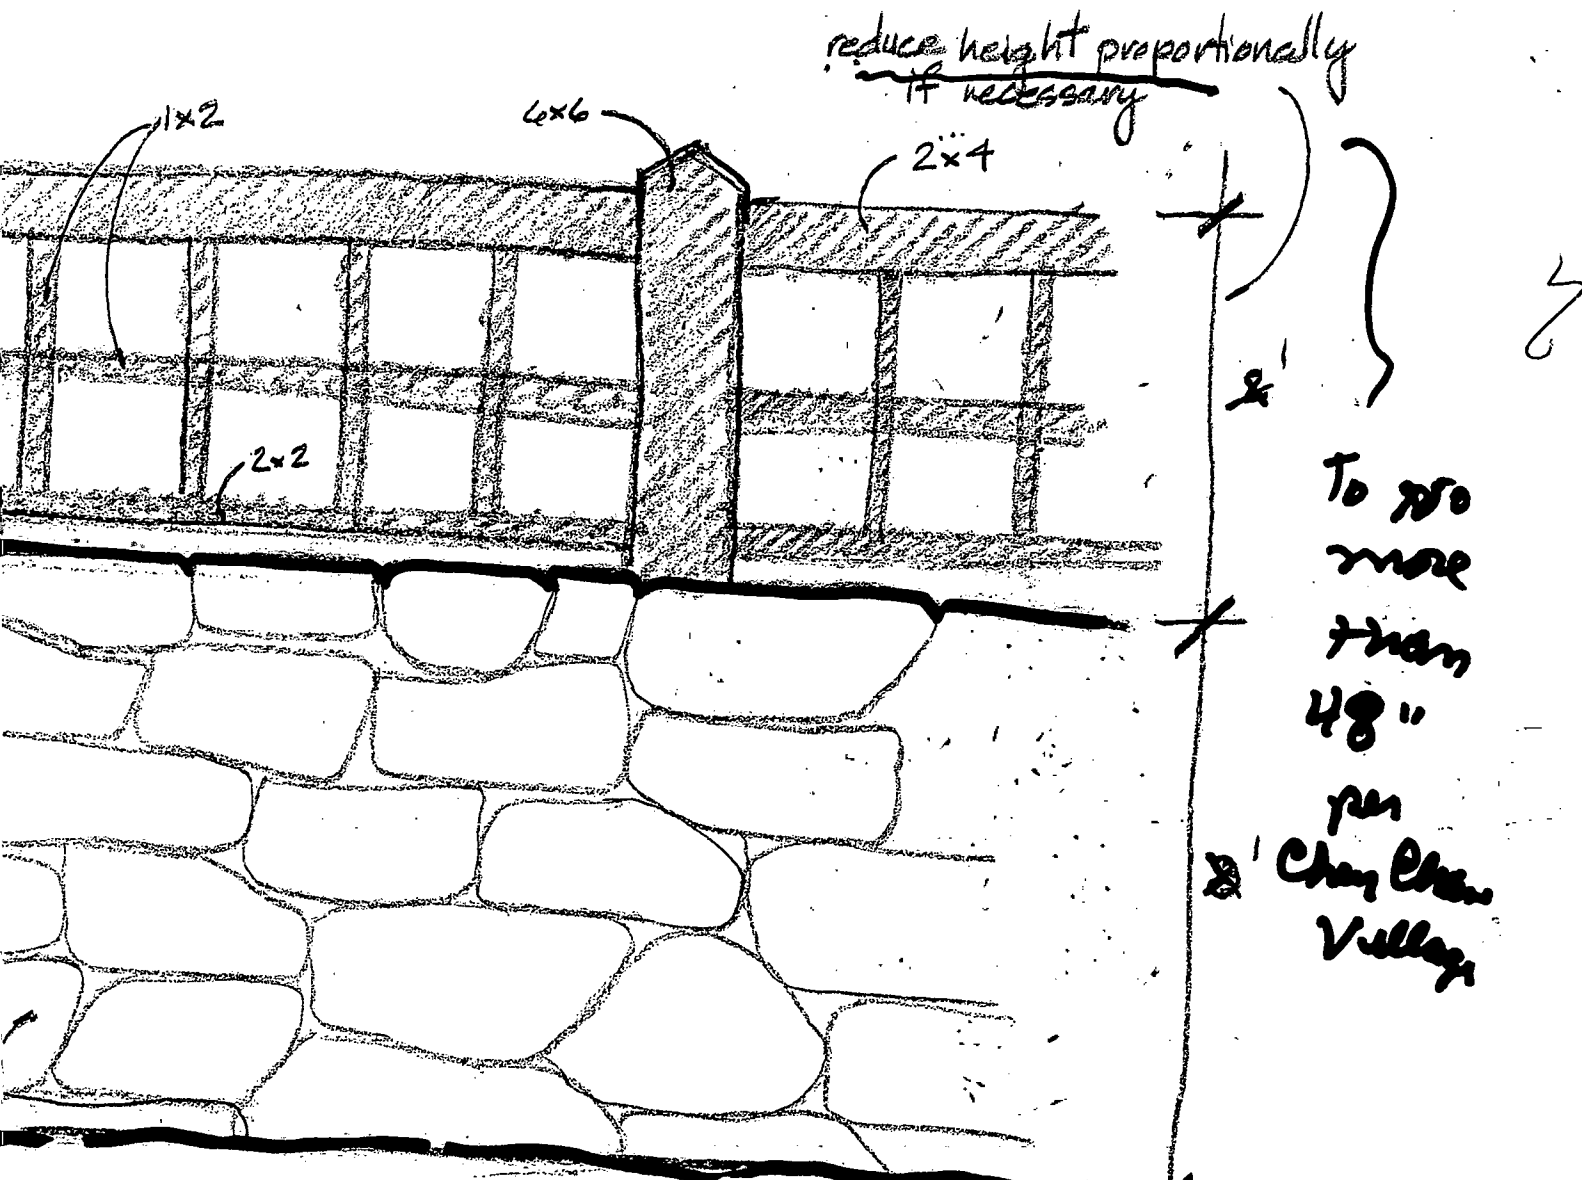 reduce height proportionally
if necessary
1x2
6x6
2x4
2x2
To no
more
than
48"
per
Village